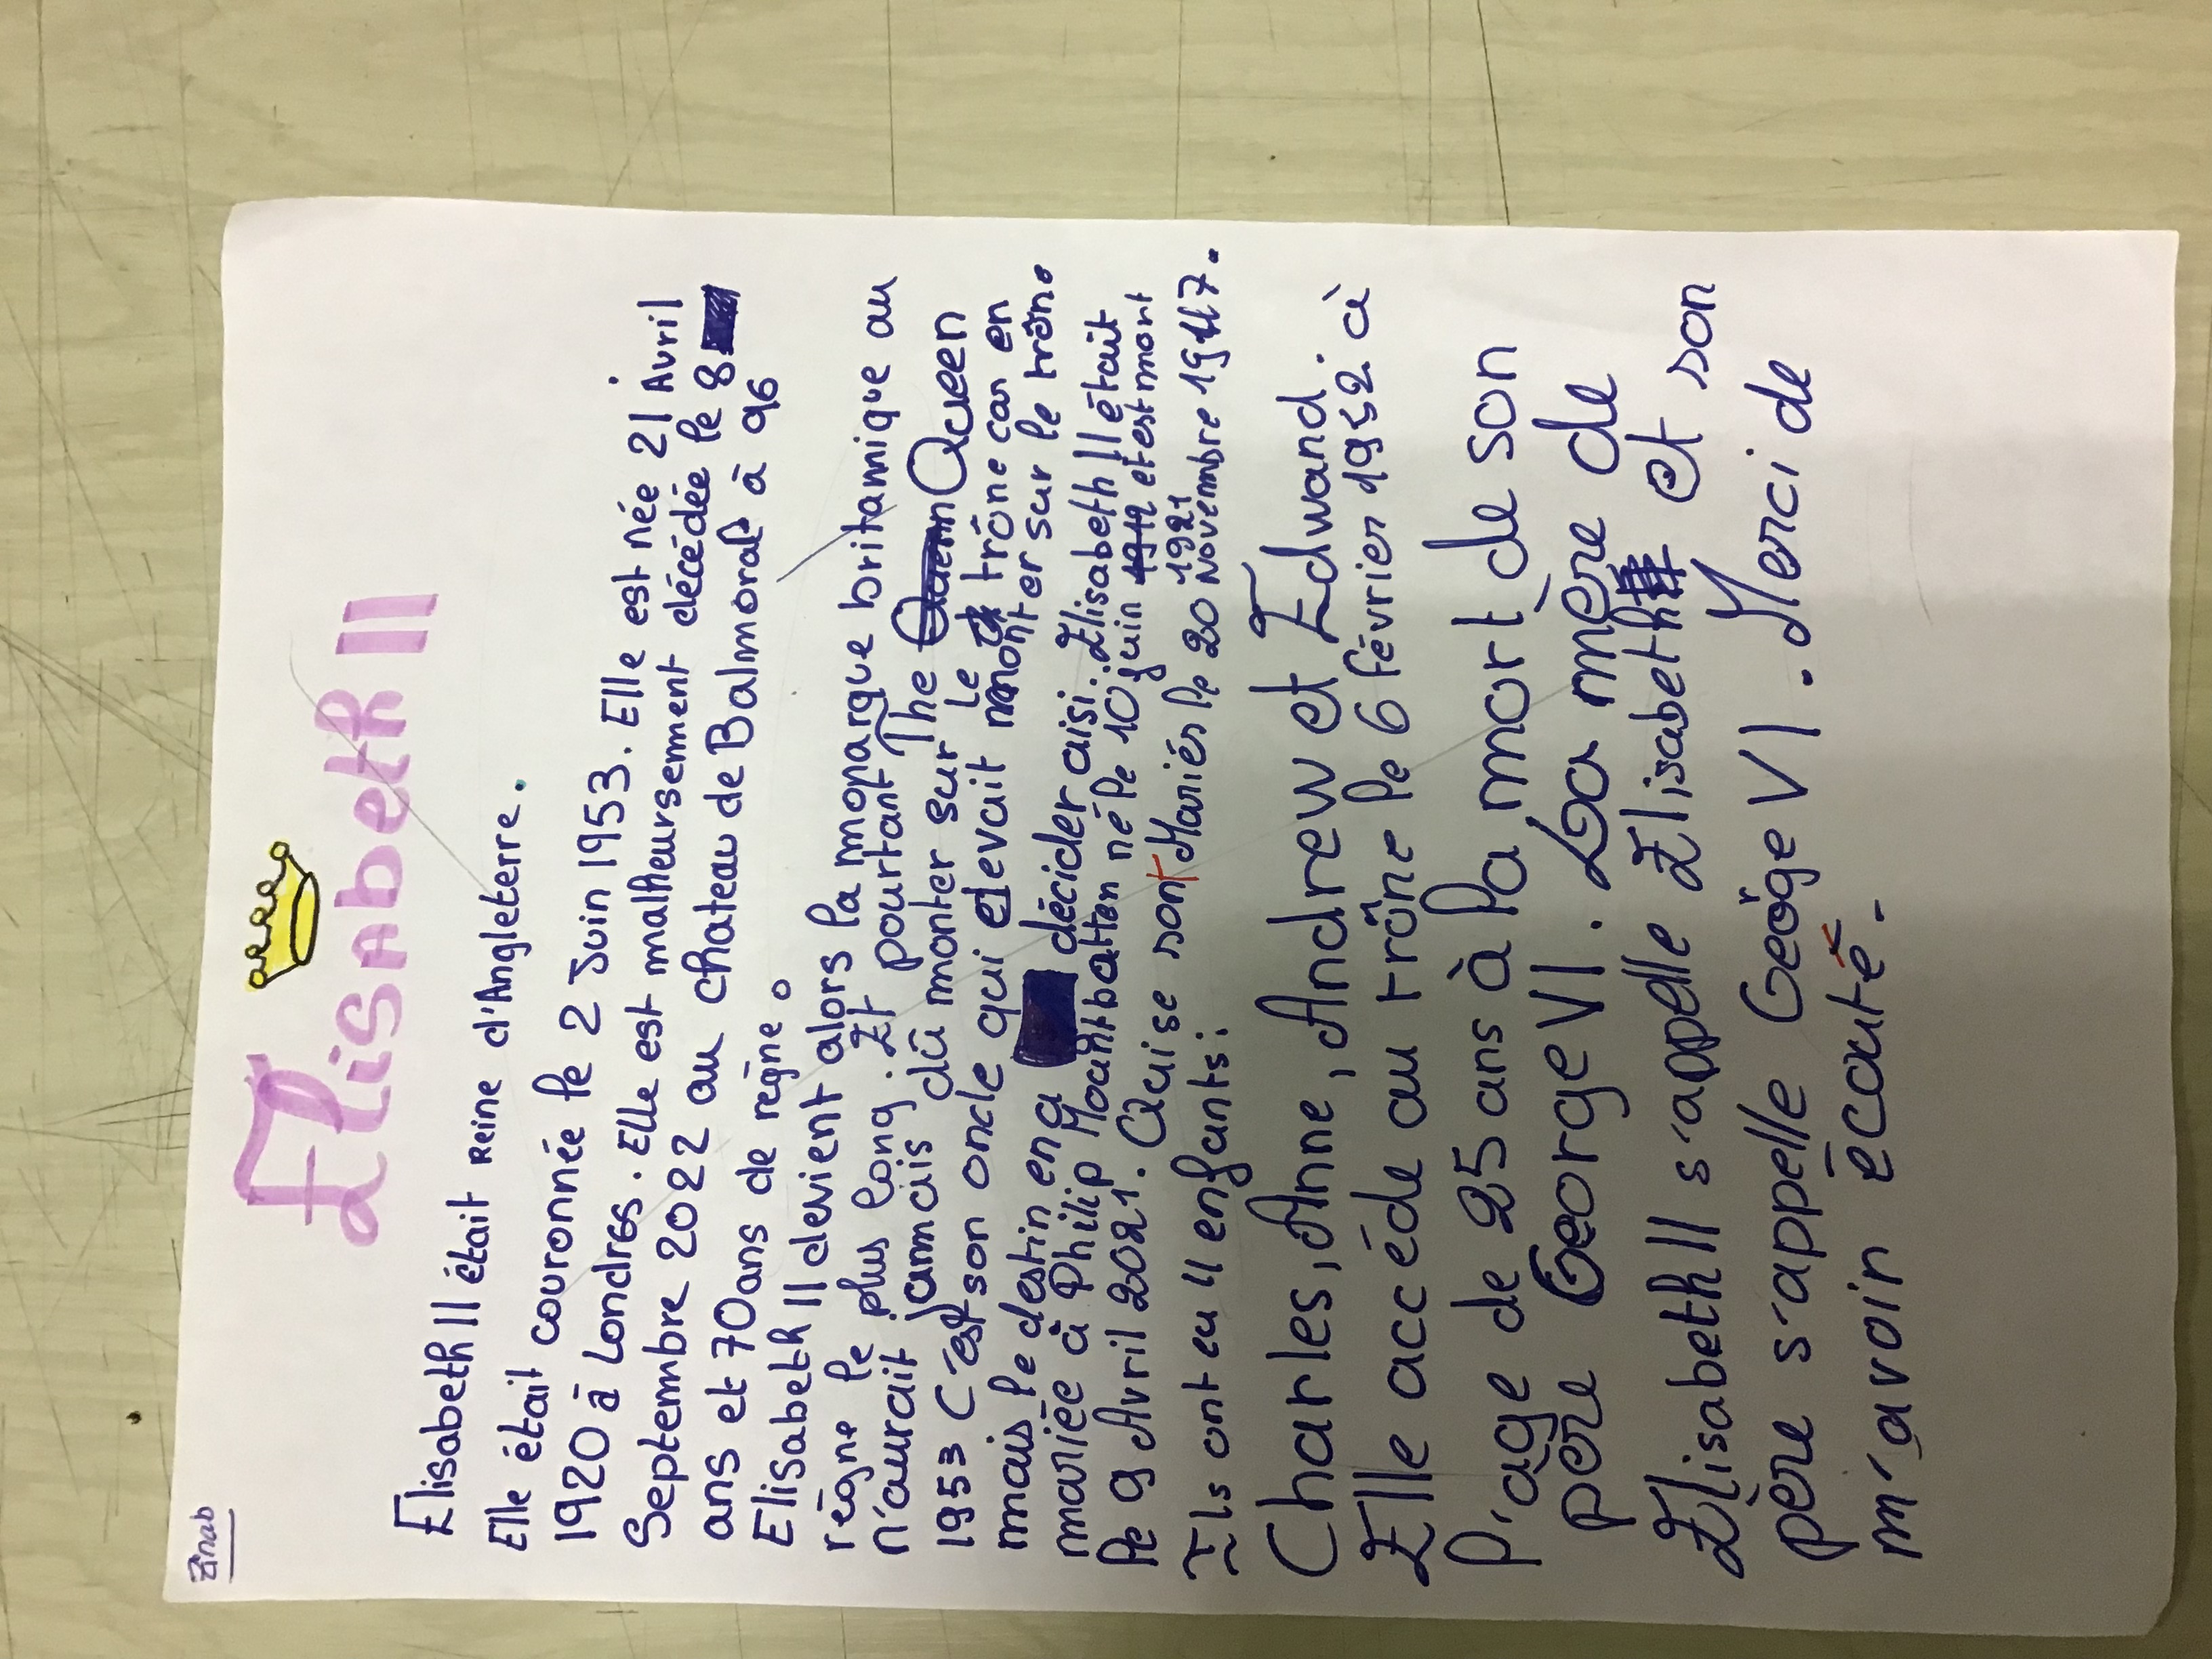 Zinab
Elisabeth II
Elisabeth II était Reine d'Angleterre.
Elle était couronnée le 2 Juin 1953. Elle est née 21 Avril
1920 à Londres. Elle est malheursement décédée le 8
Septembre 2022 au chateau de Balmoral à 96
ans et 70 ans de regne.
Elisabeth II devient alors la monarque britamique au
règne le plus long. Et pourtant The Queen
n'aurait jamais dû monter sur le trône car en
1953 C'est son oncle qui devait monter sur le trône
mais le destin en a décider aisi. Elisabeth II était
mariée à Philip Mountbatten né le 10 juin 1921 et est mort
le 9 Avril 2021. Qui se sont Mariés le 20 Novembre 1947.
Ils ont eu 4 enfants:
Charles, Anne, Andrew et Edward.
Elle accéde au trône le 6 février 1952 à
l'âge de 25 ans à la mort de son
père George VI. La mère de
Elisabeth II s'appelle Elisabeth et son
père s'appelle Geoge VI. Merci de
m'avoir écouté.